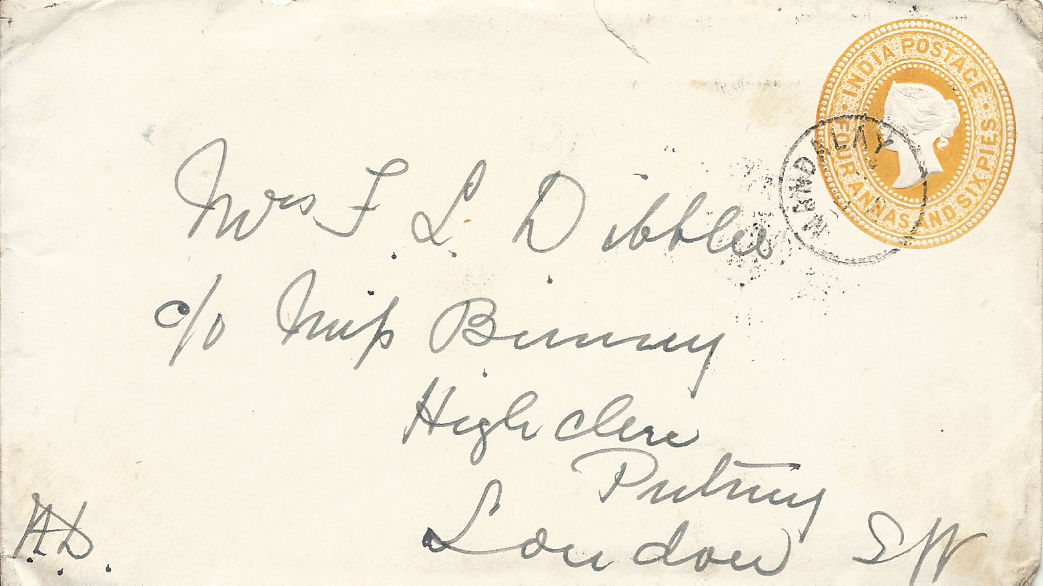 INDIA POSTAGE
FOUR ANNAS AND SIX PIES
MANDALAY
Mrs F. L. Dibble
c/o Miss Binney
Highclere
Putney
London SW